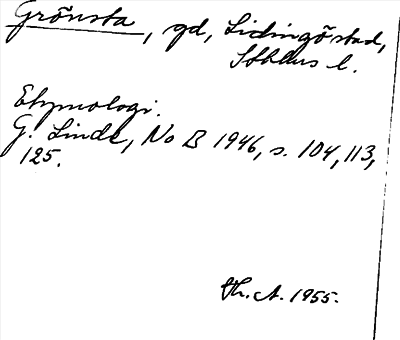 Grönsta, gd, Lidingö stad,
Sthlms l.
Etymologi.
G. Linde, No B 1946, s. 104, 113,
125.
Th. A. 1955.